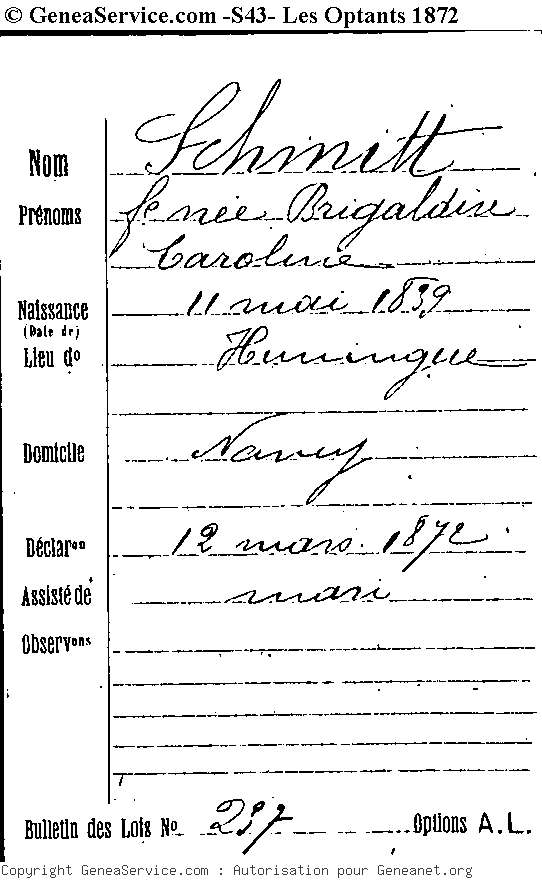 © GeneaService.com -S43- Les Optants 1872
Nom Schmitt
Prénoms fe née Brigaldin
Caroline
Naissance 11 mai 1839
(Date de)
Lieu do Huningue
Domicile Nancy
Déclaron 12 mars 1872
Assisté de mari
Observons
Bulletin des Lois No 237 Options A.L.
Copyright GeneaService.com : Autorisation pour Geneanet.org